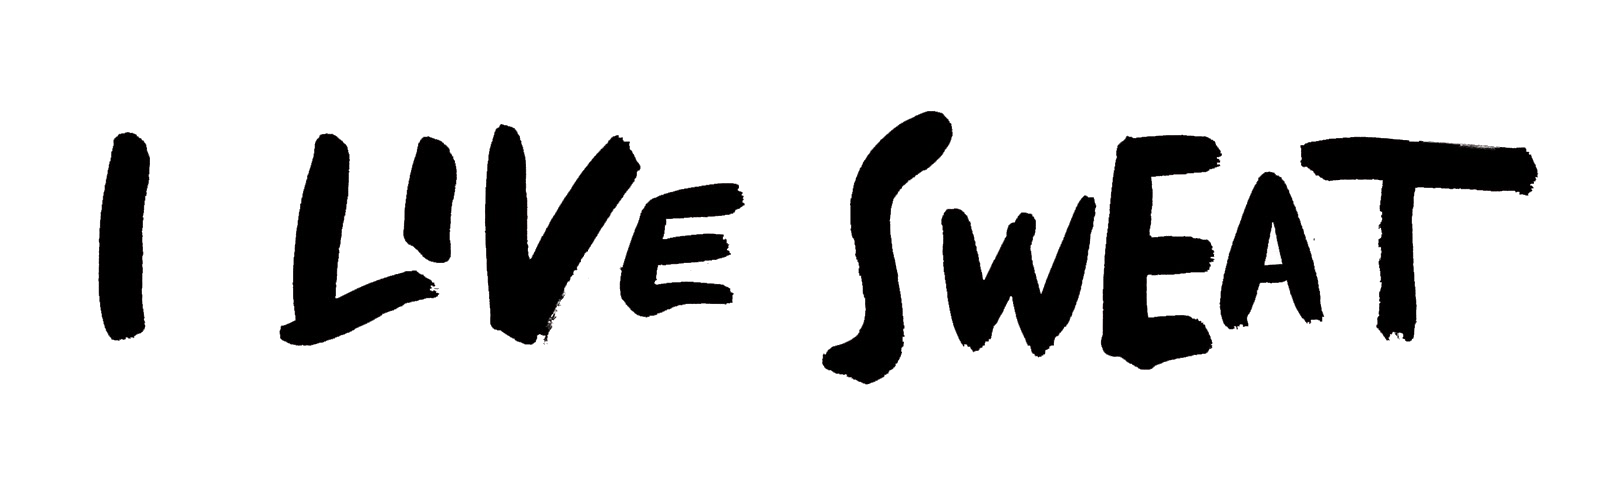 I LIVE SWEAT